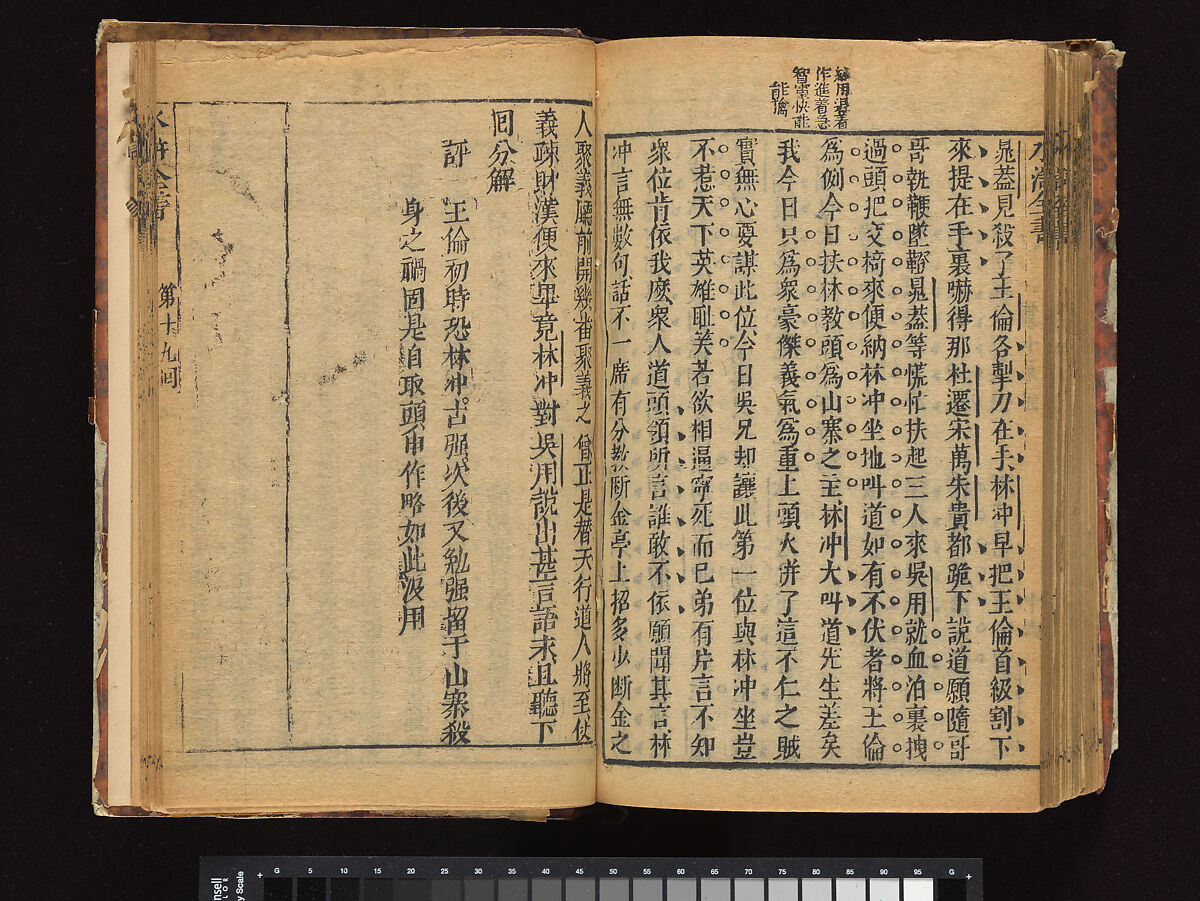 水滸全書
用
作進着急
智雲快
能擒
晁蓋見殺了王倫各掣刀在手林冲早把王倫首級割下
來提在手裏嚇得那杜遷宋萬朱貴都跪下說道願隨哥
哥執鞭墜鐙晁蓋等慌忙扶起三人來吳用就血泊裏拽
過頭把交椅來便納林冲坐地叫道如有不伏者將王倫
爲例今日扶林教頭爲山寨之主林冲大叫道先生差矣
我今日只爲衆豪傑義氣爲重上頭火併了這不仁之賊
實無心要謀此位今日吳兄却讓此第一位與林冲坐豈
不惹天下英雄耻笑若欲相逼寧死而已弟有片言不知
衆位肯依我麽衆人道頭領所言誰敢不依願聞其言林
冲言無數句話不一席有分教斷金亭上招多少斷金之
人聚義廳前開幾番聚義之會正是替天行道人將至仗
義疎財漢便來畢竟林冲對吳用說出甚言語來且聽下
囘分解
評 王倫初時恐林冲占強次後又勉强留于山寨殺
身之禍固是自取頭巾作略如此没用
水滸全書
第十九囘
G 5 10 15 20 25 30 35 40 45 50 55 60 65 70 75 80 85 90 95 G